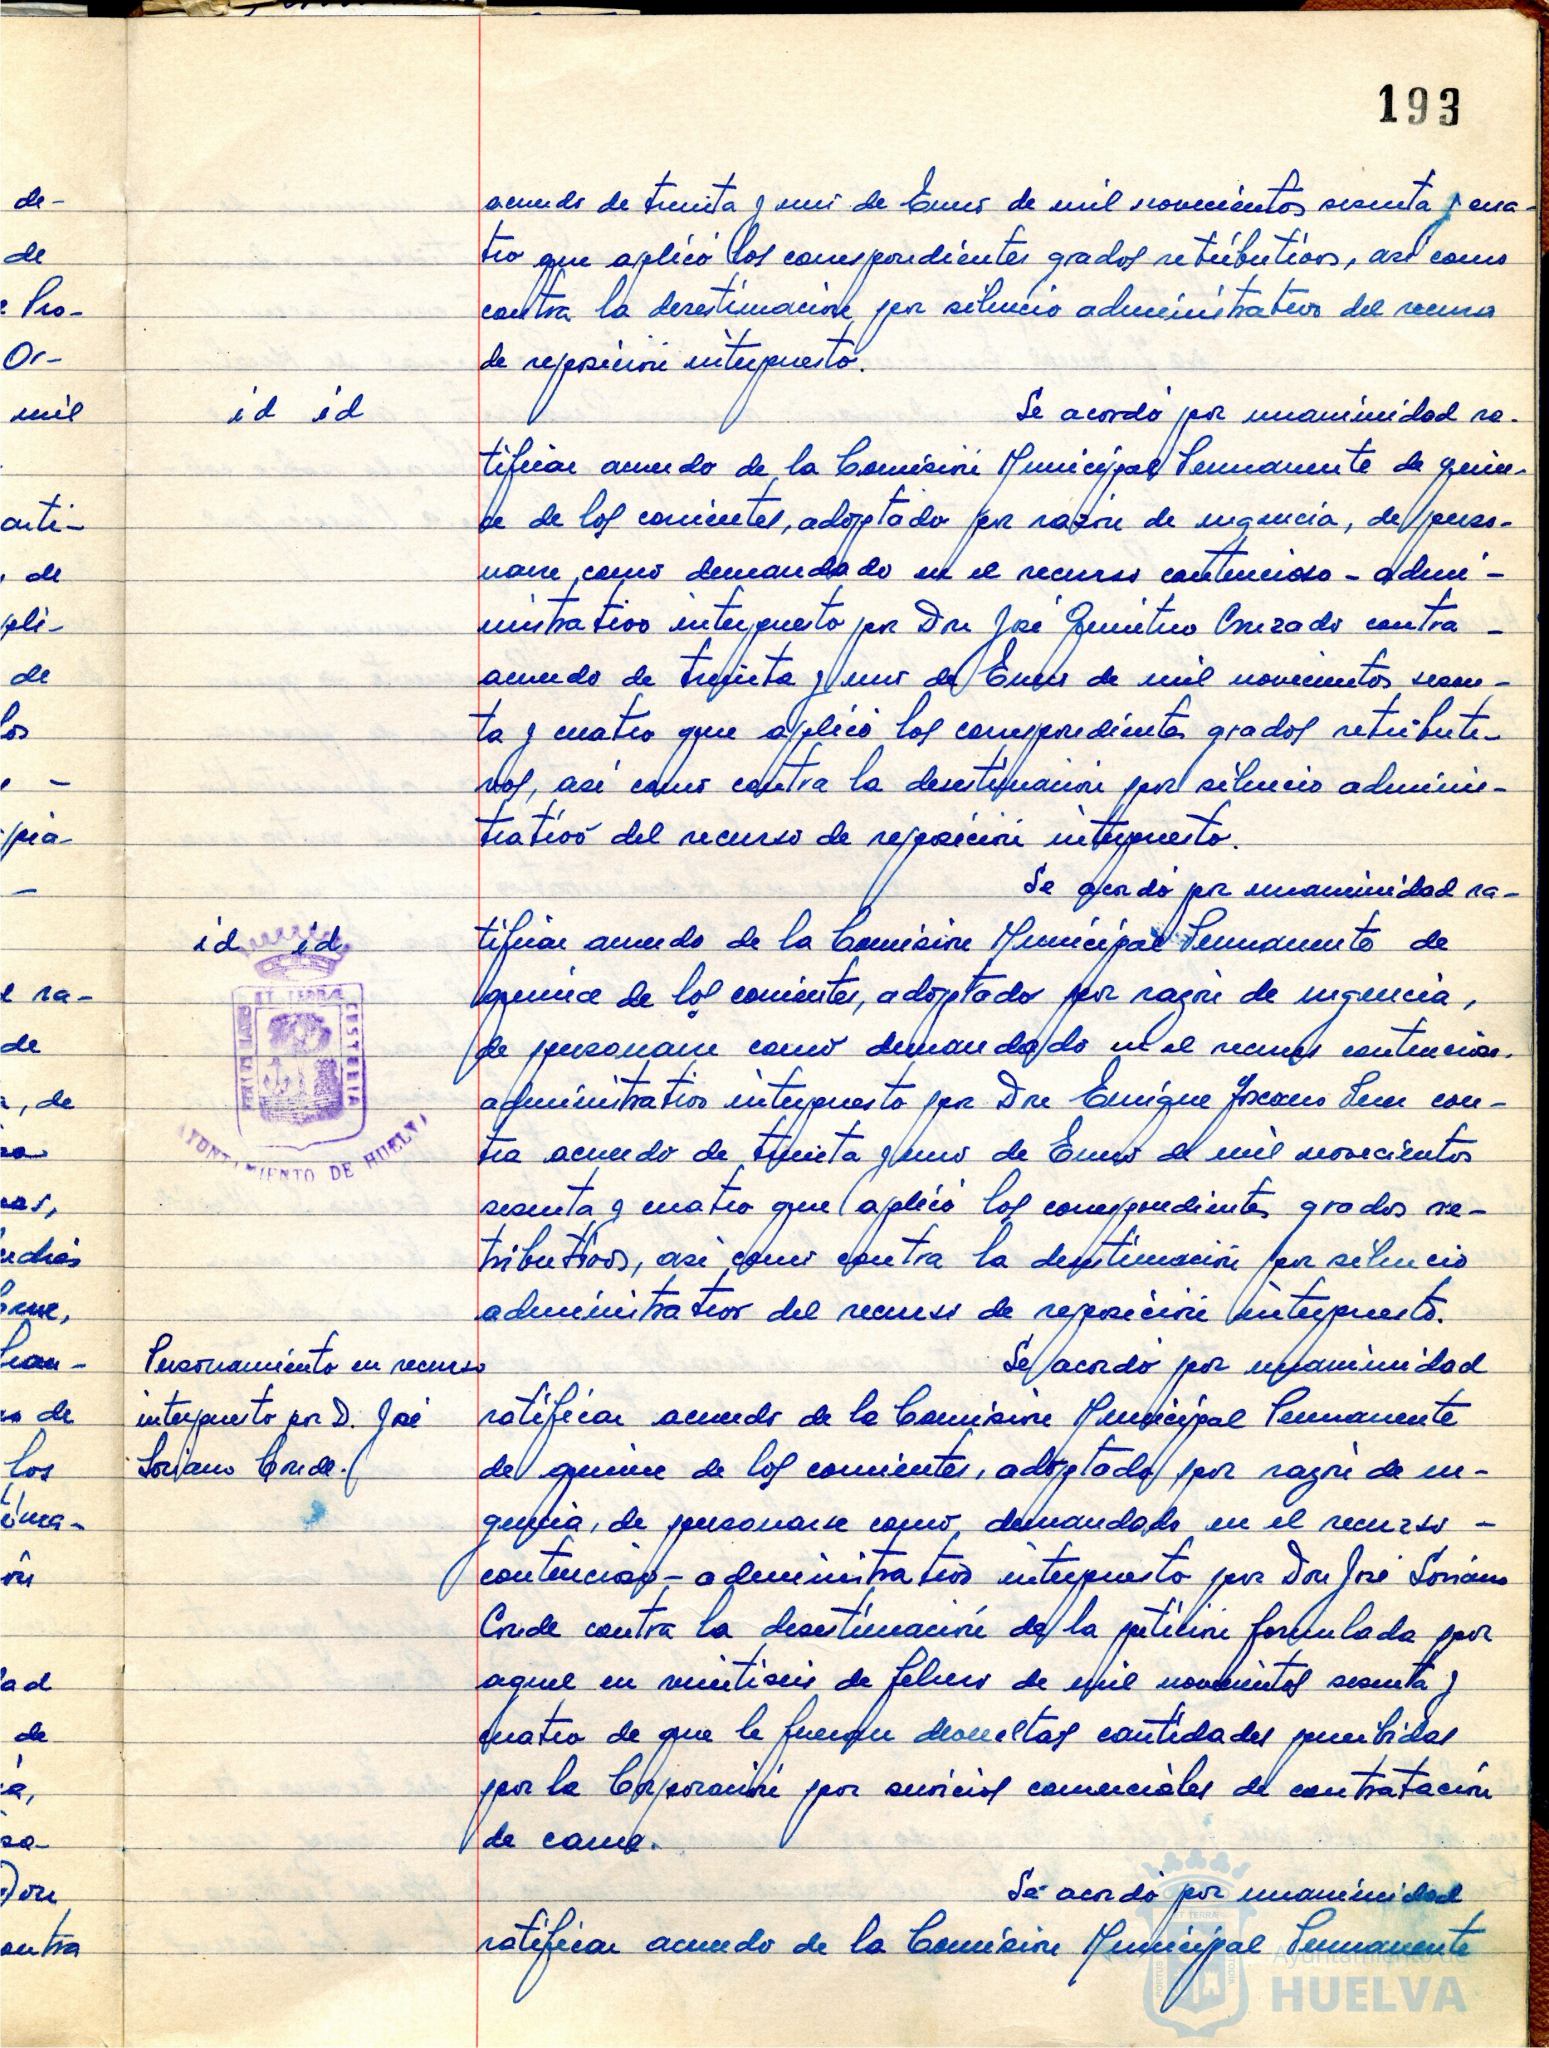 193
acuerdo de treinta y uno de Enero de mil novecientos sesenta y cua-
tro que aplicó los correspondientes grados retributivos, así como
contra la desestimación por silencio administrativo del recurso
de reposición interpuesto.
id id
Se acordó por unanimidad ra-
tificar acuerdo de la Comisión Municipal Permanente de quin-
ce de los corrientes, adoptado por razón de urgencia, de perso-
narse como demandado en el recurso contencioso-admi-
nistrativo interpuesto por Don José Quintero Cruzado contra -
acuerdo de treinta y uno de Enero de mil novecientos sesen-
ta y cuatro que aplicó los correspondientes grados retributi-
vos, así como contra la desestimación por silencio adminis-
trativo del recurso de reposición interpuesto.
Se acordó por unanimidad ra-
id id
tificar acuerdo de la Comisión Municipal Permanente de
quince de los corrientes, adoptado por razón de urgencia,
de personarse como demandado en el recurso contencioso-
administrativo interpuesto por Don Enrique contra
acuerdo de treinta y uno de Enero de mil novecientos
sesenta y cuatro que aplicó los correspondientes grados re-
tributivos, así como contra la desestimación por silencio
administrativo del recurso de reposición interpuesto.
ET TERRÆ
CUSTODIA
AYUNTAMIENTO DE HUELVA
Personamiento en recurso
interpuesto por D. José
Soriano Conde.
Se acordó por unanimidad
ratificar acuerdo de la Comisión Municipal Permanente
de quince de los corrientes, adoptado por razón de ur-
gencia, de personarse como demandado en el recurso -
contencioso-administrativo interpuesto por Don José Soriano
Conde contra la desestimación de la petición formulada por
aquel en veintiseis de febrero de mil novecientos sesenta y
cuatro de que le fueran devueltas cantidades percibidas
por la Corporación por servicios comerciales de contratación
de carne.
Se acordó por unanimidad
ratificar acuerdo de la Comisión Municipal Permanente
de-
de
Pro-
Or-
mil
arti-
, de
pli-
de
los
-
-
ra-
de
, de
de
los
ad
de
Don
ontra
Ayuntamiento de
HUELVA